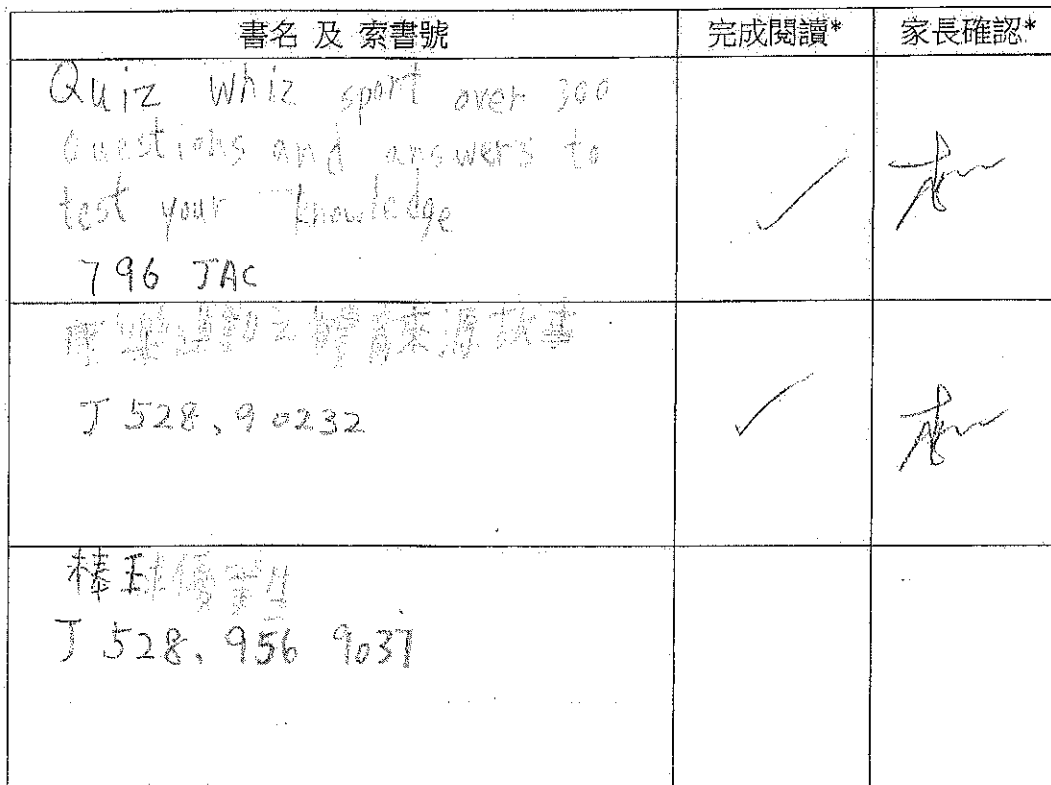 書名 及 索書號 完成閱讀* 家長確認*
Quiz whiz sport over 300
Questions and answers to
test your knowledge
796 JAC
運動之體育來源故事
J 528.90232
棒球優等生
J 528.956 9037